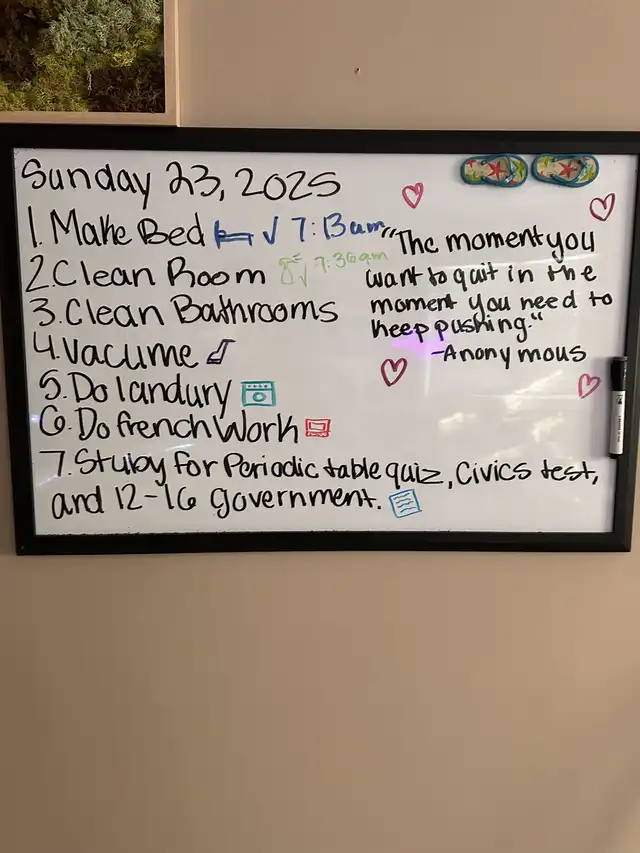 Sunday 23, 2025
1. Make Bed √ 7:13am
2. Clean Room √ 7:36am
3. Clean Bathrooms
4. Vacume
5. Do landury
6. Do french Work
7. Stuby for Periodic table quiz, Civics test,
and 12-16 government.
"The moment you
want to quit in the
moment you need to
keep pushing."
-Anonymous